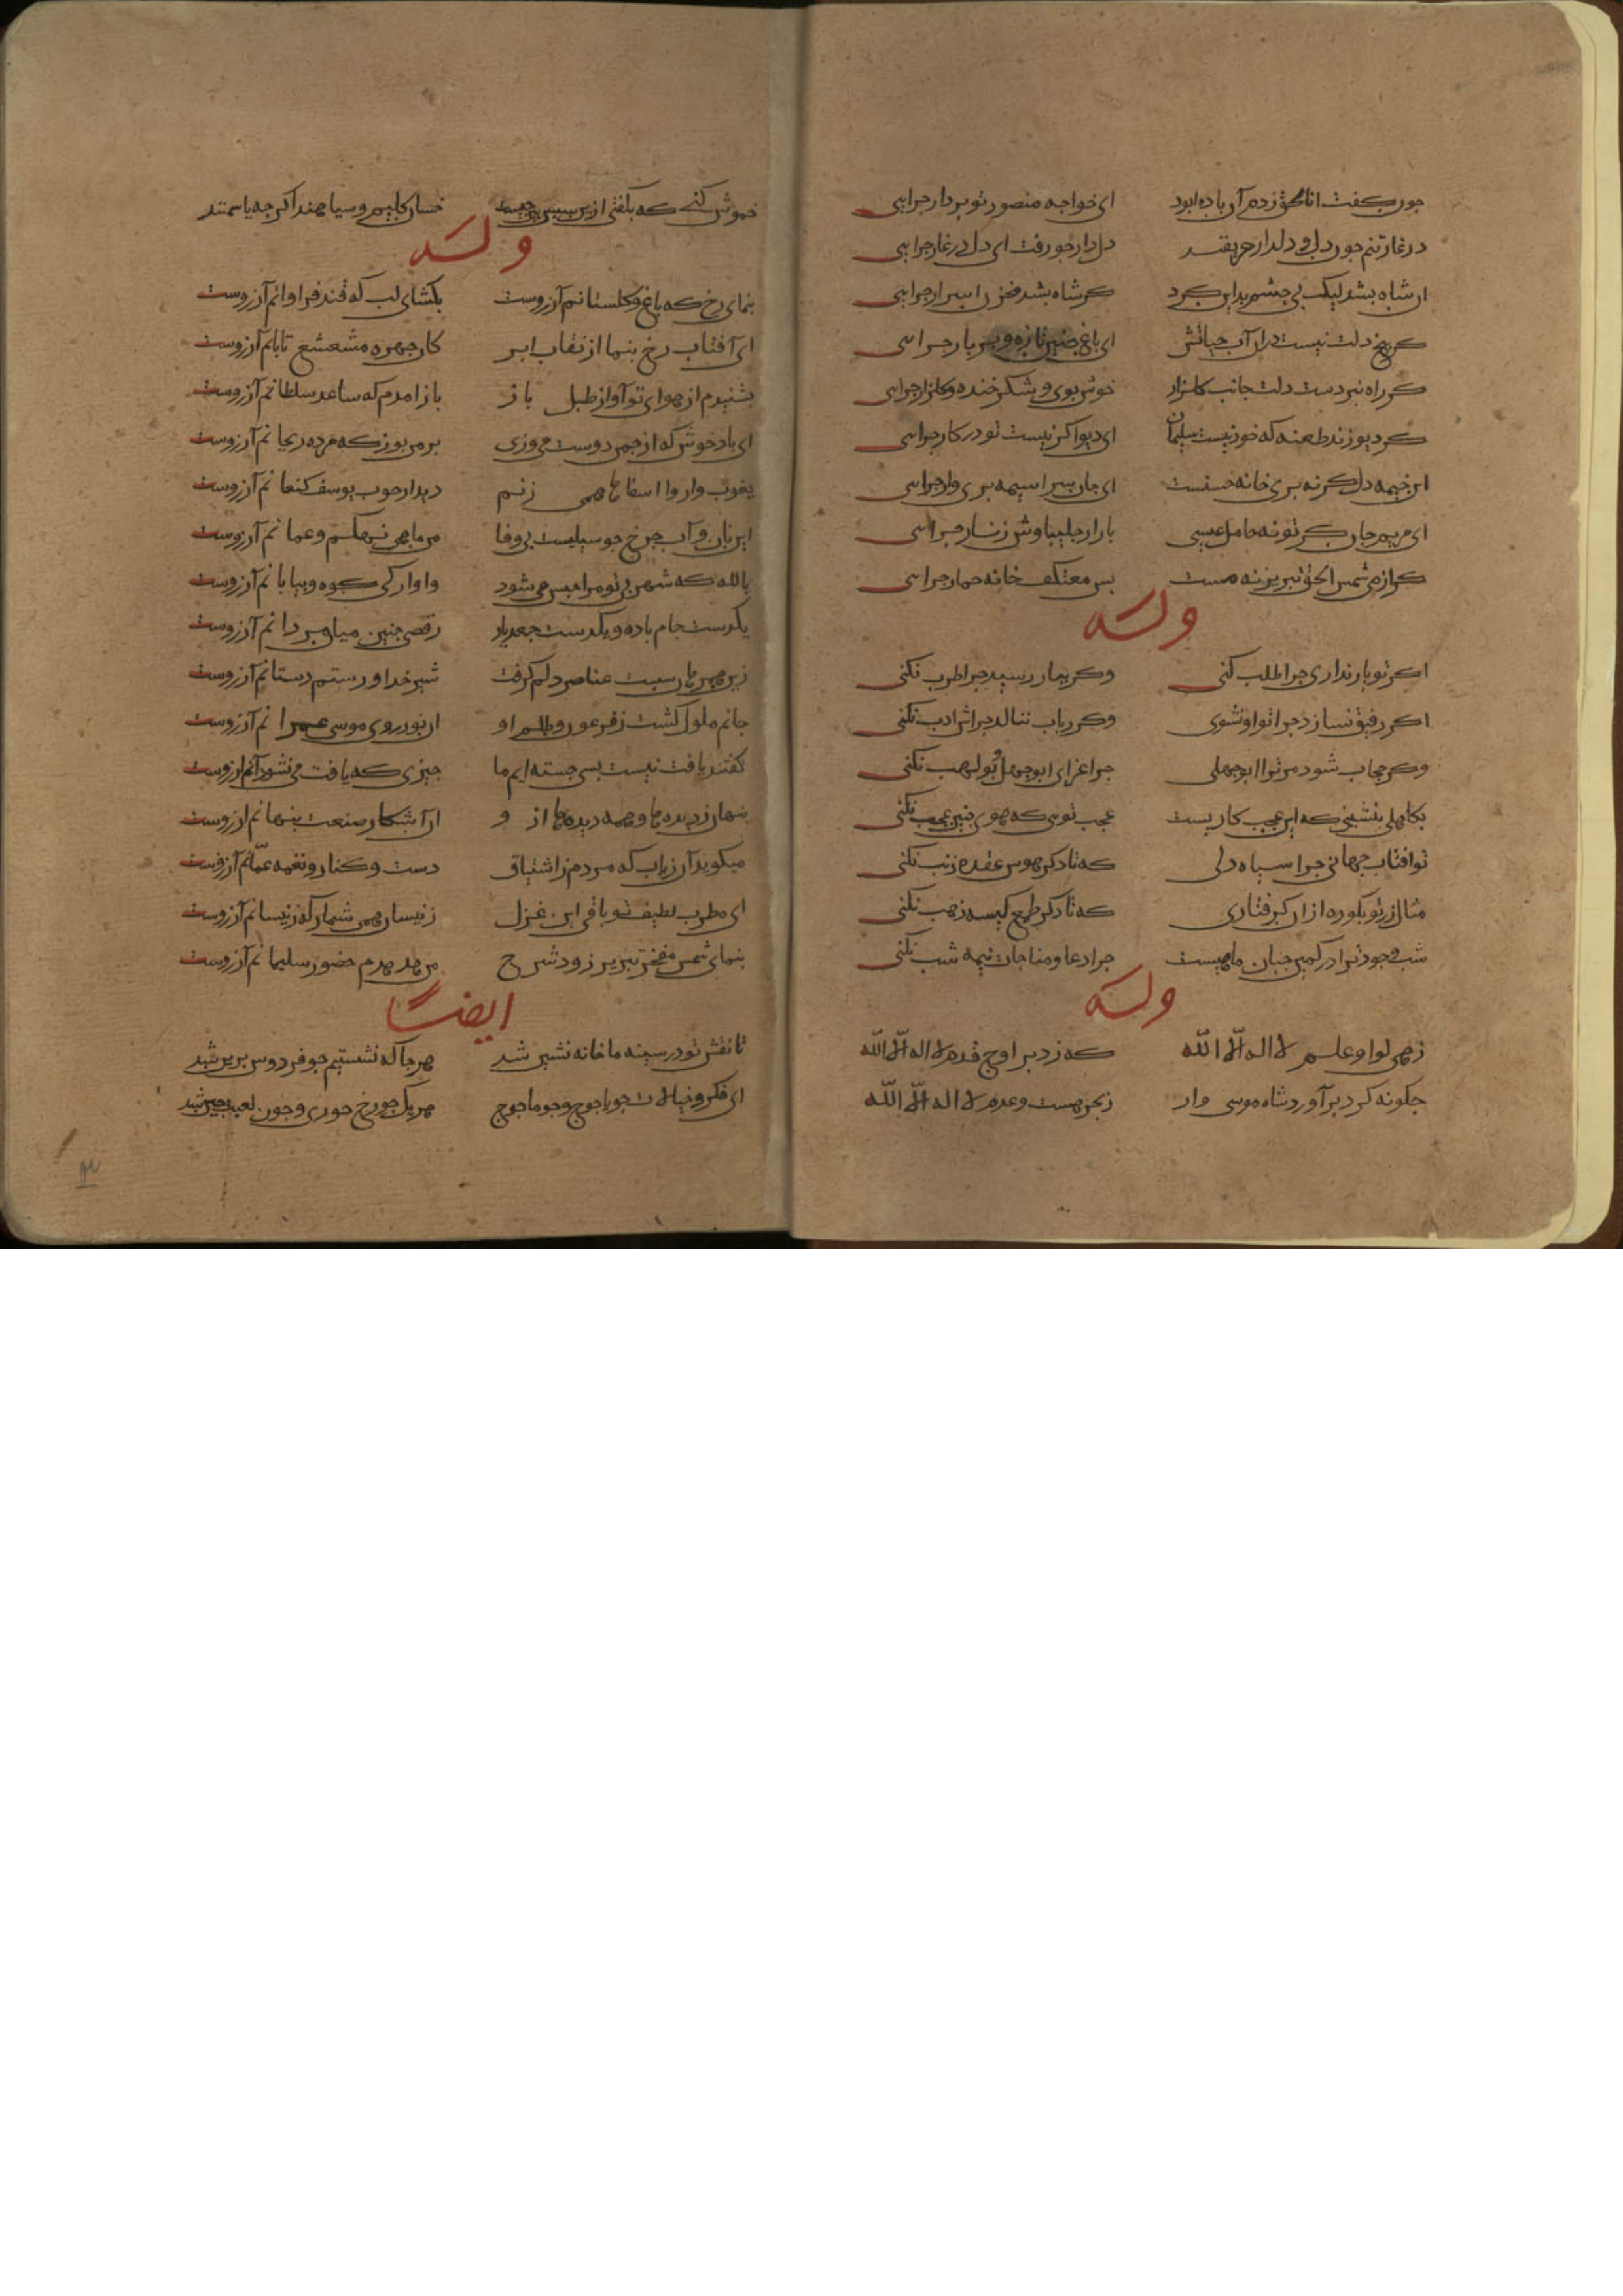 چون گفت انا الحق زدم آن باده بود ای خواجه منصور تو بر دار چرایی
در غار تنم چون دل و دلدار حریفند دلدار چو رفت ای دل در غار چرایی
آن شاه بشد لیک پی چشم بد این کرد کر شاه بشد مخزن اسرار چرایی
کر بیخ دلت نیست در آن آب حیاتش ای باغ چنین تازه و پربار چرایی
کر راه نبردست دلت جانب کلزار خوش بوی و شکر خنده و کلزار چرایی
کر دیو زند طعنه که خود نیست سلیمان ای دیو اکر نیست تو در کار چرایی
این خیمه دل کرنه بری خانه حسنست ای جان سراسیمه بری وار چرایی
ای مریم جان کر تو نه حامل عیسی باران چلیپا وش زنار چرایی
کر از می شمس الحق تبریز نه مست بس معتکف خانه خمار چرایی
وله
اکر تو یار نداری چرا طلب کنی وکر بیار رسید چرا طرب نکنی
اکر رفیق نسازد چرا تو او نشوی وکر رباب ننالد چراش ادب نکنی
وکر حجاب شود مر ترا ابوجهلی چرا غزای ابوجهل و بولهب نکنی
بکاهلی بنشینی که این عجب کاریست عجب تویی که هوس چنین عجب نکنی
تو افتاب جهانی چرا سیاه دلی که تا دکر هوس عقده ذنب نکنی
مثال زر تو بکوره از آن کرفتاری که تا دکر طمع کیسه ذهب نکنی
شب وجود ترا در کمین چنان ماهیست چرا دعا و مناجات نیمه شب نکنی
وله
زهی لوا و علم لا اله الا الله که زد بر اوج قدم لا اله الا الله
چکونه کرد برآورد شاه موسی وار ز بحر هست و عدم لا اله الا الله
خموش کنی که بکفتی ازین سپس خسان کلیم و سیاهند اکر چه یاسمنند
وله
بنمای رخ که باغ و کلستانم آرزوست بکشای لب که قند فراوانم آرزوست
ای آفتاب رخ بنما از نقاب ابر کان چهره مشعشع تابانم آرزوست
بشنیدم از هوای تو آواز طبل باز باز امدم که ساعد سلطانم آرزوست
ای باد خوش که از چمن دوست می وزی بر من بوز که مژده ریحانم آرزوست
یعقوب وار وا اسفاها همی زنم دیدار خوب یوسف کنعانم آرزوست
این نان و آب چرخ چو سیلیست بی وفا من ماهی نهنکم و عمانم آرزوست
بالله که شهر بی تو مرا حبس می شود واوارکی کوه و بیابانم آرزوست
یکدست جام باده و یکدست جعد یار رقصی چنین میان دانم آرزوست
زین همرهان سست عناصر دلم کرفت شیر خدا و رستم دستانم آرزوست
جانم ملول کشت ز فرعون و ظلم او ان نور روی موسی عمرانم آرزوست
کفتند یافت نیست بسی جسته ایم ما چیزی که یافت می نشود آنم ارزوست
پنهان ز دیده ها و همه دیده ها از و ان آشکار صنعت پنهانم ارزوست
میکوید آن رباب که مردم ز اشتیاق دست و کنار و نغمه عثمانم آرزوست
ای مطرب لطیف تو باقی این غزل زینسان همی شمار که زینسانم آرزوست
بنمای شمس مفخر تبریز زود شرح من هدهدم حضور سلیمانم آرزوست
ایضا
تا نقش تو در سینه ما خانه نشین شد هر جا که نشستیم چو فردوس برین شد
ای فکر و خیالات چو یاجوج و چو ماجوج هر یک چو رخ حوری و چون لعبت چین شد